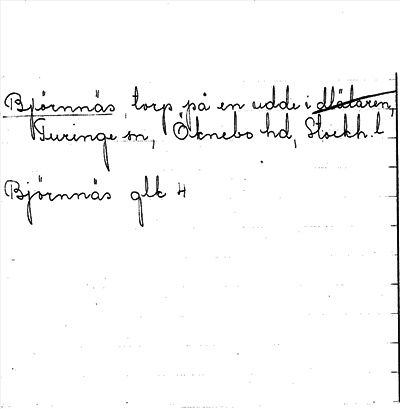 Björnnäs torp på en udde i Mälaren,
Turinge sn, Öknebo hd, Stockh. l
Björnnäs glk 4